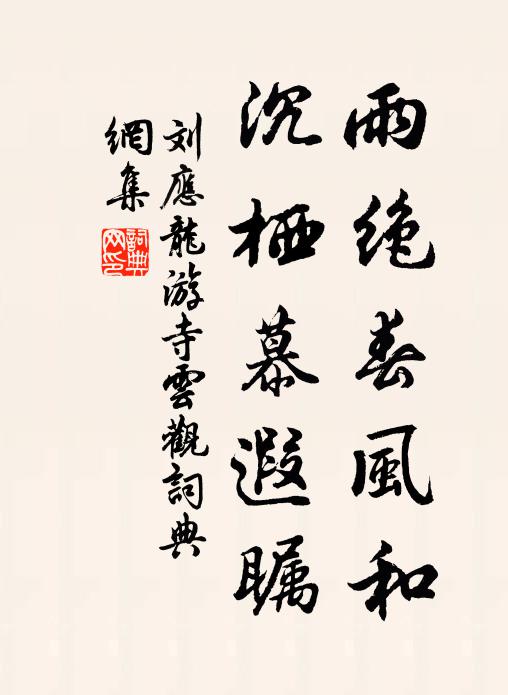 雨绝春風和
沉栖慕遐瞩
刘應龍游寺雲觀詞典
網集
詞典
网印